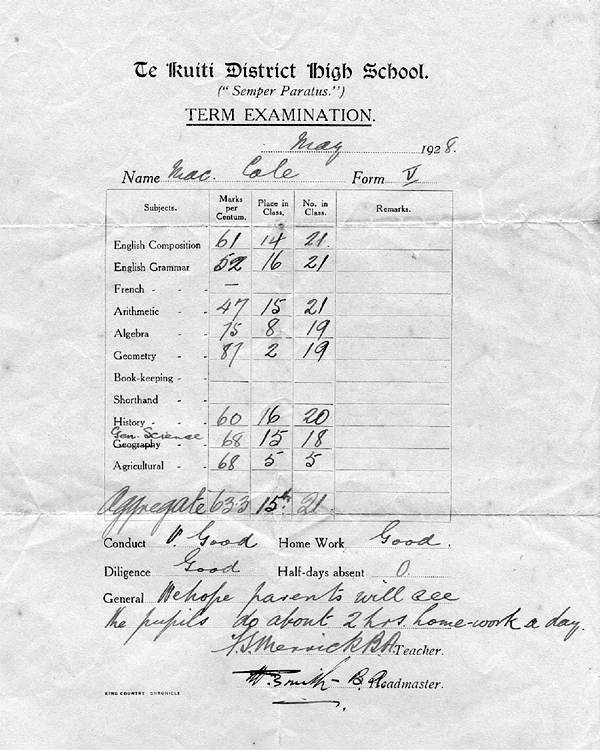 Te Kuiti District High School.
("Semper Paratus.")
TERM EXAMINATION.
May 1928.
Name Mac. Cole Form V
Subjects. Marks per Centum. Place in Class. No. in Class. Remarks.
English Composition 61 14 21.
English Grammar 52 16 21
French - - —
Arithmetic - - 47 15 21
Algebra - - 75 8 19
Geometry - - 87 2 19
Book-keeping - -
Shorthand - -
History - - 60 16 20
Gen. Science
Geography - - 68 15 18
Agricultural - - 68 5 5
Aggregate 633 15th. 21.
Conduct V. Good Home Work Good.
Diligence Good Half-days absent 0.
General We hope parents will see
the pupils do about 2 hrs. home-work a day.
Merrick B.A. Teacher.
W. Smith - B.A. Headmaster.
KING COUNTRY CHRONICLE